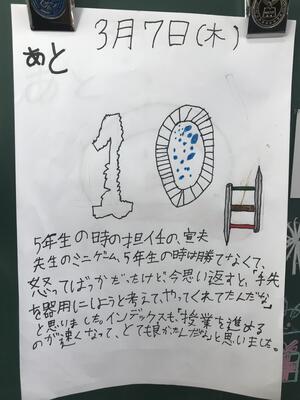 3月7日(木)
あと
10日
5年生の時の担任の、宣夫
先生のミニゲーム、5年生の時は勝てなくて、
怒ってばっかだったけど、今思い返すと、「手先
を器用にしようと考えて、やってくれてたんだな」
と思いました。インデックスも、「授業を進める
のが速くなって、とても良かったんだなと思いました。